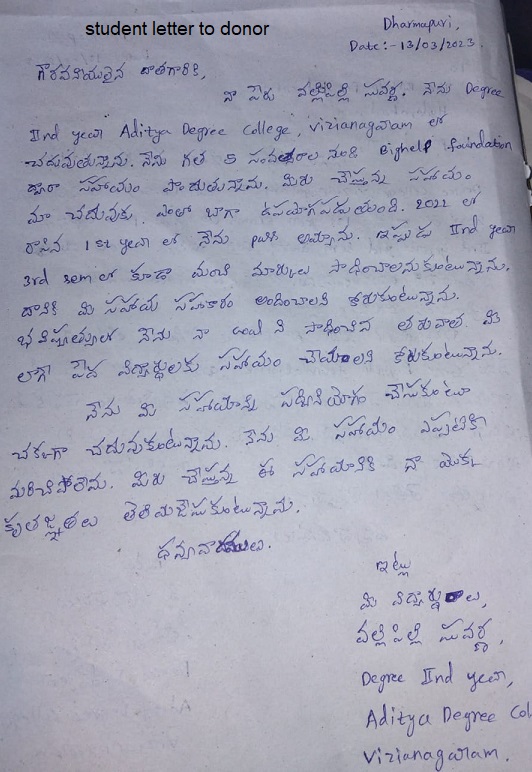 student letter to donor
Dharmapuri,
Date:- 13/03/2023.
గౌరవనీయులైన దాతగారికి,
నా పేరు వల్లిపిల్లి సువర్ణ. నేను Degree
IInd year Aditya Degree College, Vizianagaram లో
చదువుతున్నాను. నేను గత 5 సంవత్సరాల నుండి Bighelp foundation
ద్వారా సహాయం పొందుతున్నాను. మీరు చేస్తున్న సహాయం
మా చదువుకు ఎంతో బాగా ఉపయోగపడుతుంది. 2022 లో
రాసిన 1st year లో నేను pass అయ్యాను. ఇప్పుడు IInd year
3rd sem లో కూడా మంచి మార్కులు సాధించాలనుకుంటున్నాను.
దానికి మీ సహాయ సహకారం అందించాలని కోరుకుంటున్నాను.
భవిష్యత్తులో నేను నా ని సాధించిన తరువాత మీ
లాగా పేద విద్యార్థులకు సహాయం చేయాలని కోరుకుంటున్నాను.
నేను మీ సహాయాన్ని సద్వినియోగం చేసుకుంటూ
చక్కగా చదువుకుంటున్నాను. నేను మీ సహాయం ఎప్పటికీ
మరిచిపోలేను. మీరు చేస్తున్న ఈ సహాయానికి నా యొక్క
కృతజ్ఞతలు తెలియజేసుకుంటున్నాను.
ధన్యవాదములు.
ఇట్లు
మీ విద్యార్థురాలు,
వల్లిపిల్లి సువర్ణ,
Degree IInd year,
Aditya Degree Col
Vizianagaram.